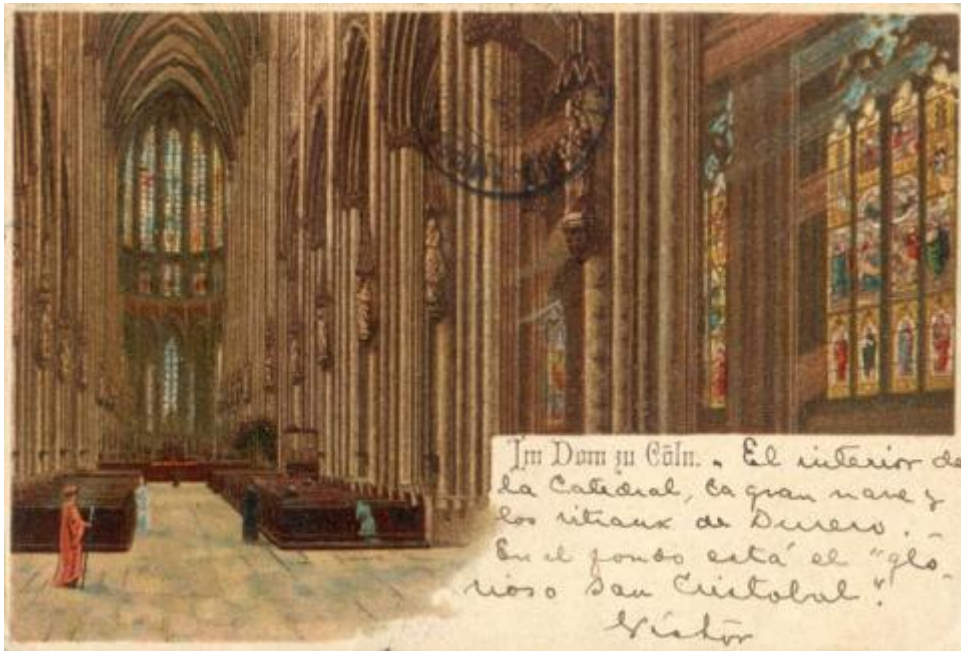 Im Dom zu Cöln. . El interior de
la Catedral, la gran nave y
los vitraux de Durero. -
En el fondo está el "glo-
rioso San Cristobal".
Víctor